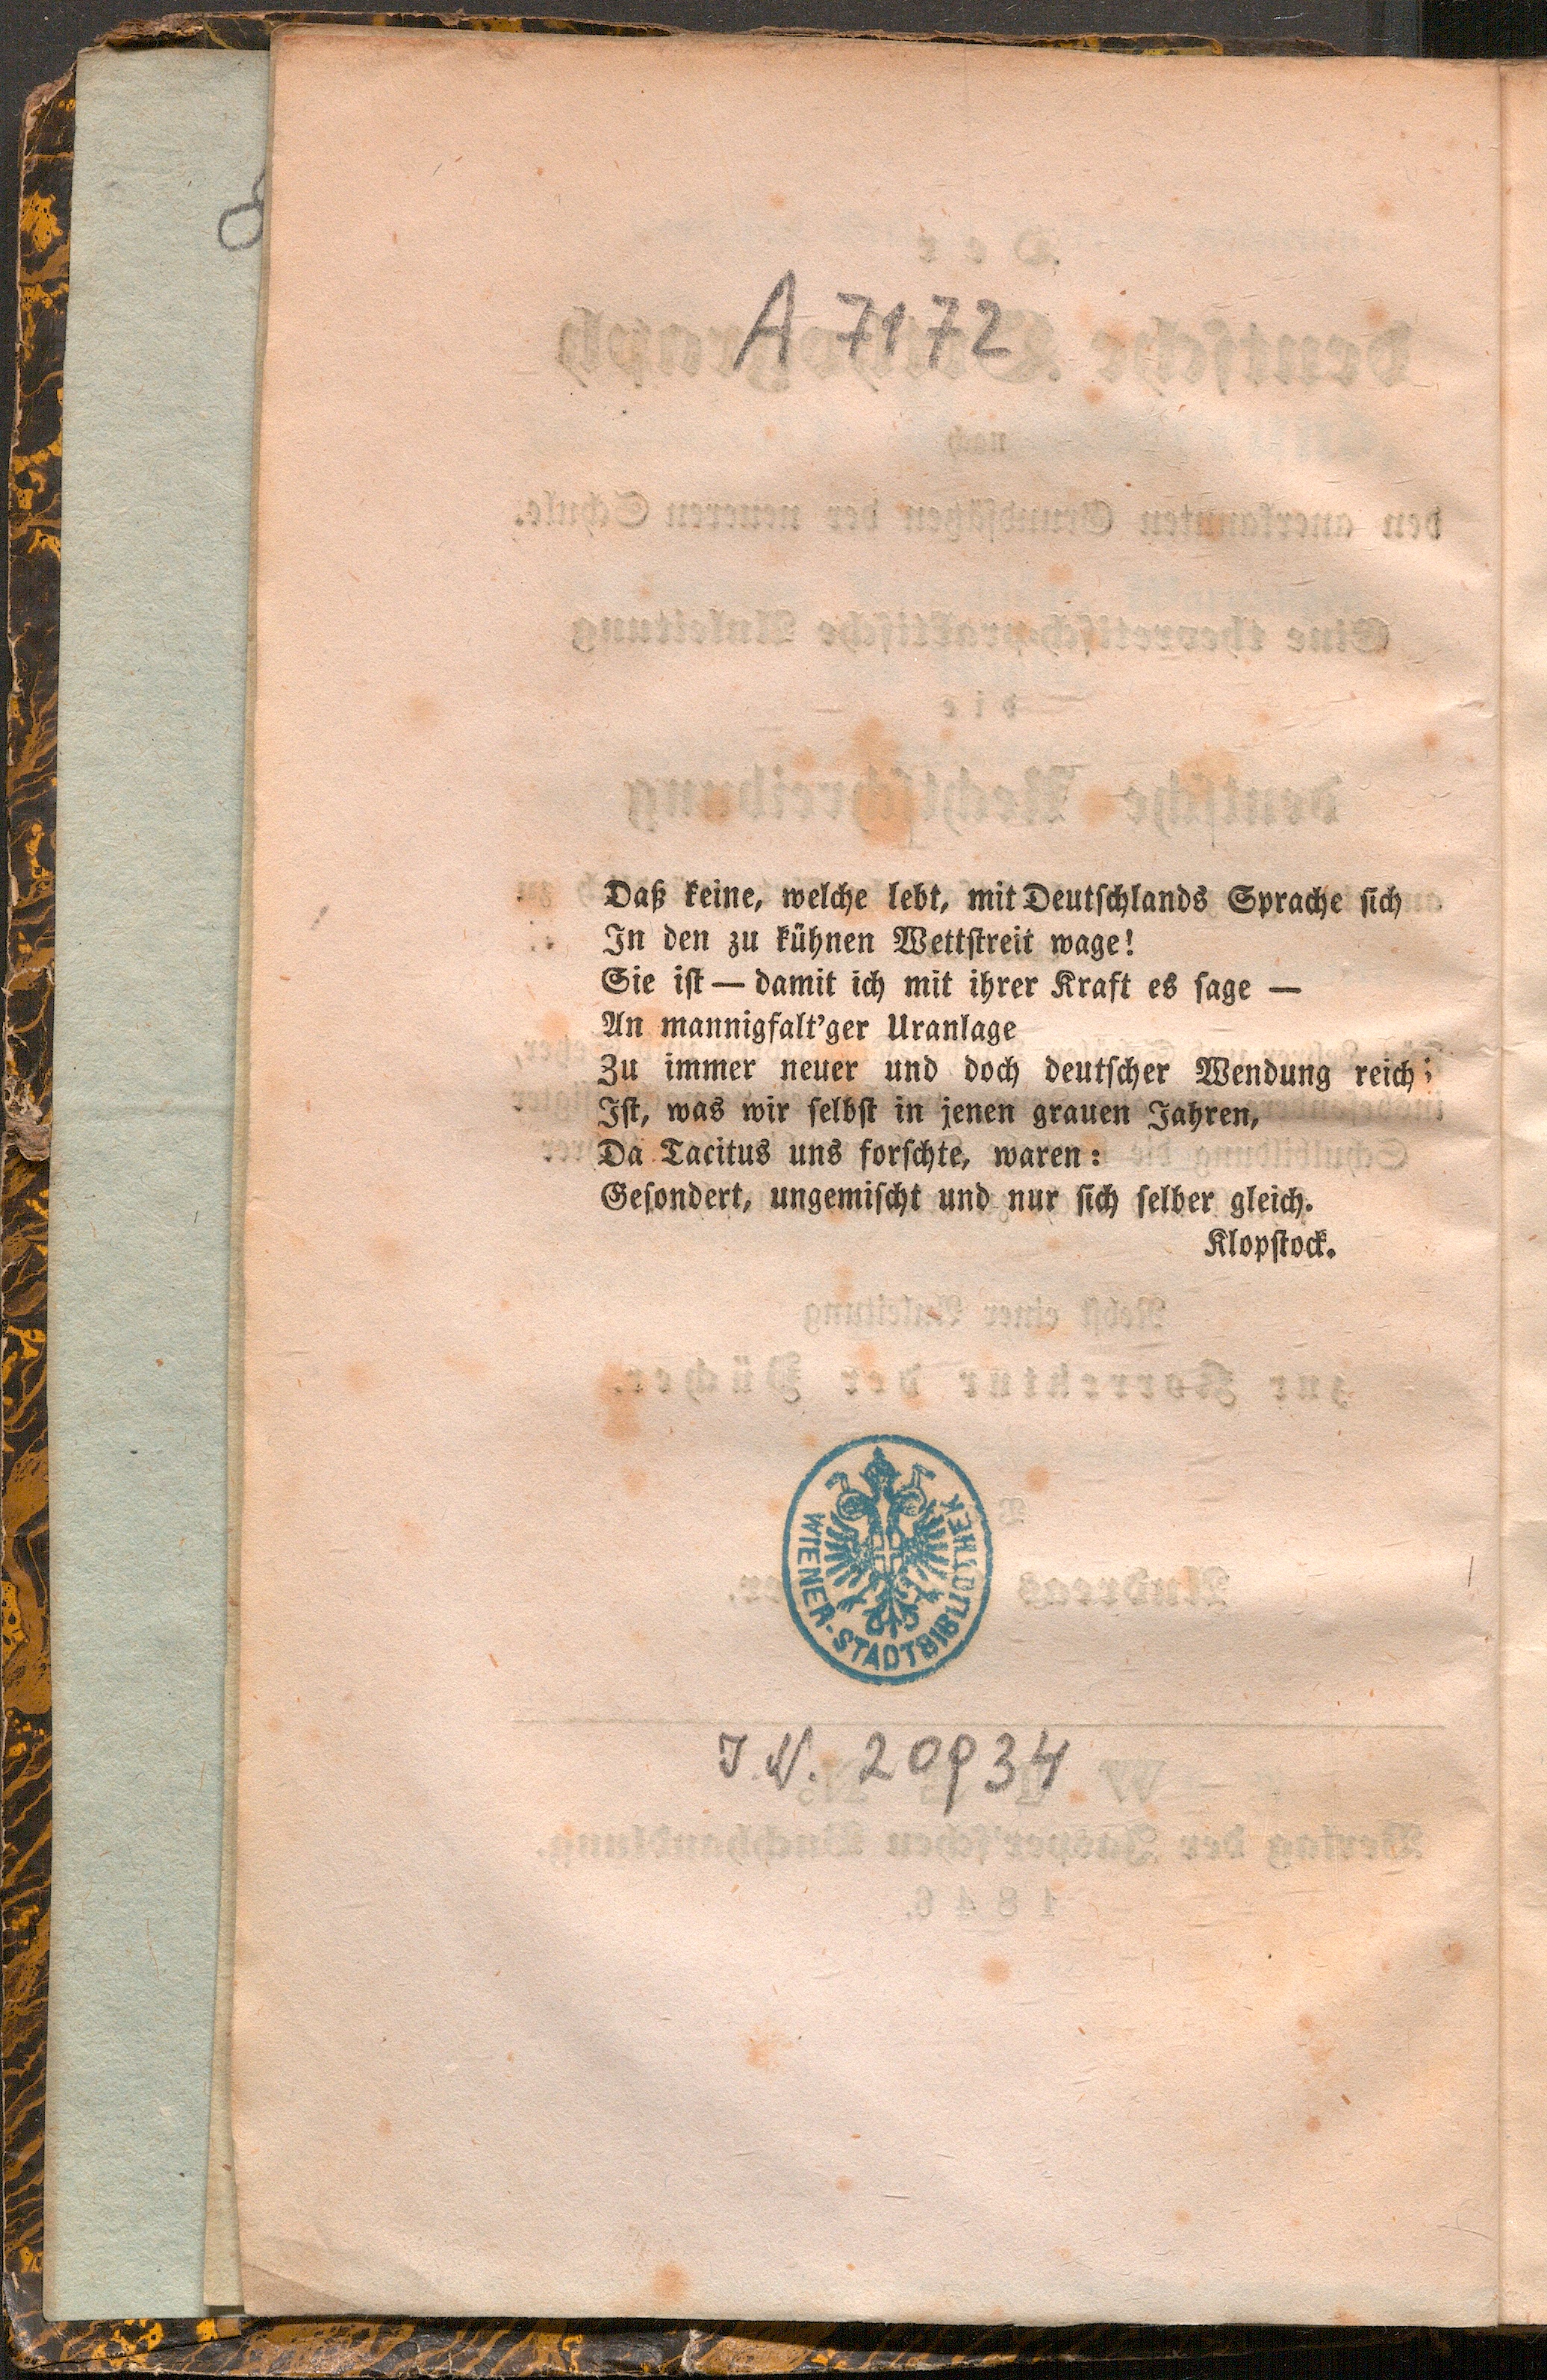 A 7172
Daß keine, welche lebt, mit Deutschlands Sprache sich
In den zu kühnen Wettstreit wage!
Sie ist — damit ich mit ihrer Kraft es sage —
An mannigfalt'ger Uranlage
Zu immer neuer und doch deutscher Wendung reich;
Ist, was wir selbst in jenen grauen Jahren,
Da Tacitus uns forschte, waren:
Gesondert, ungemischt und nur sich selber gleich.
Klopstock.
WIENER-STADTBIBLIOTHEK
J.N. 20934